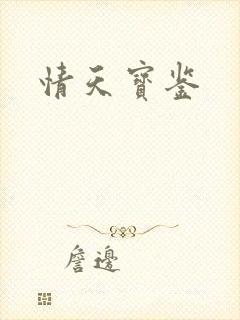 情天寶鉴
詹邊